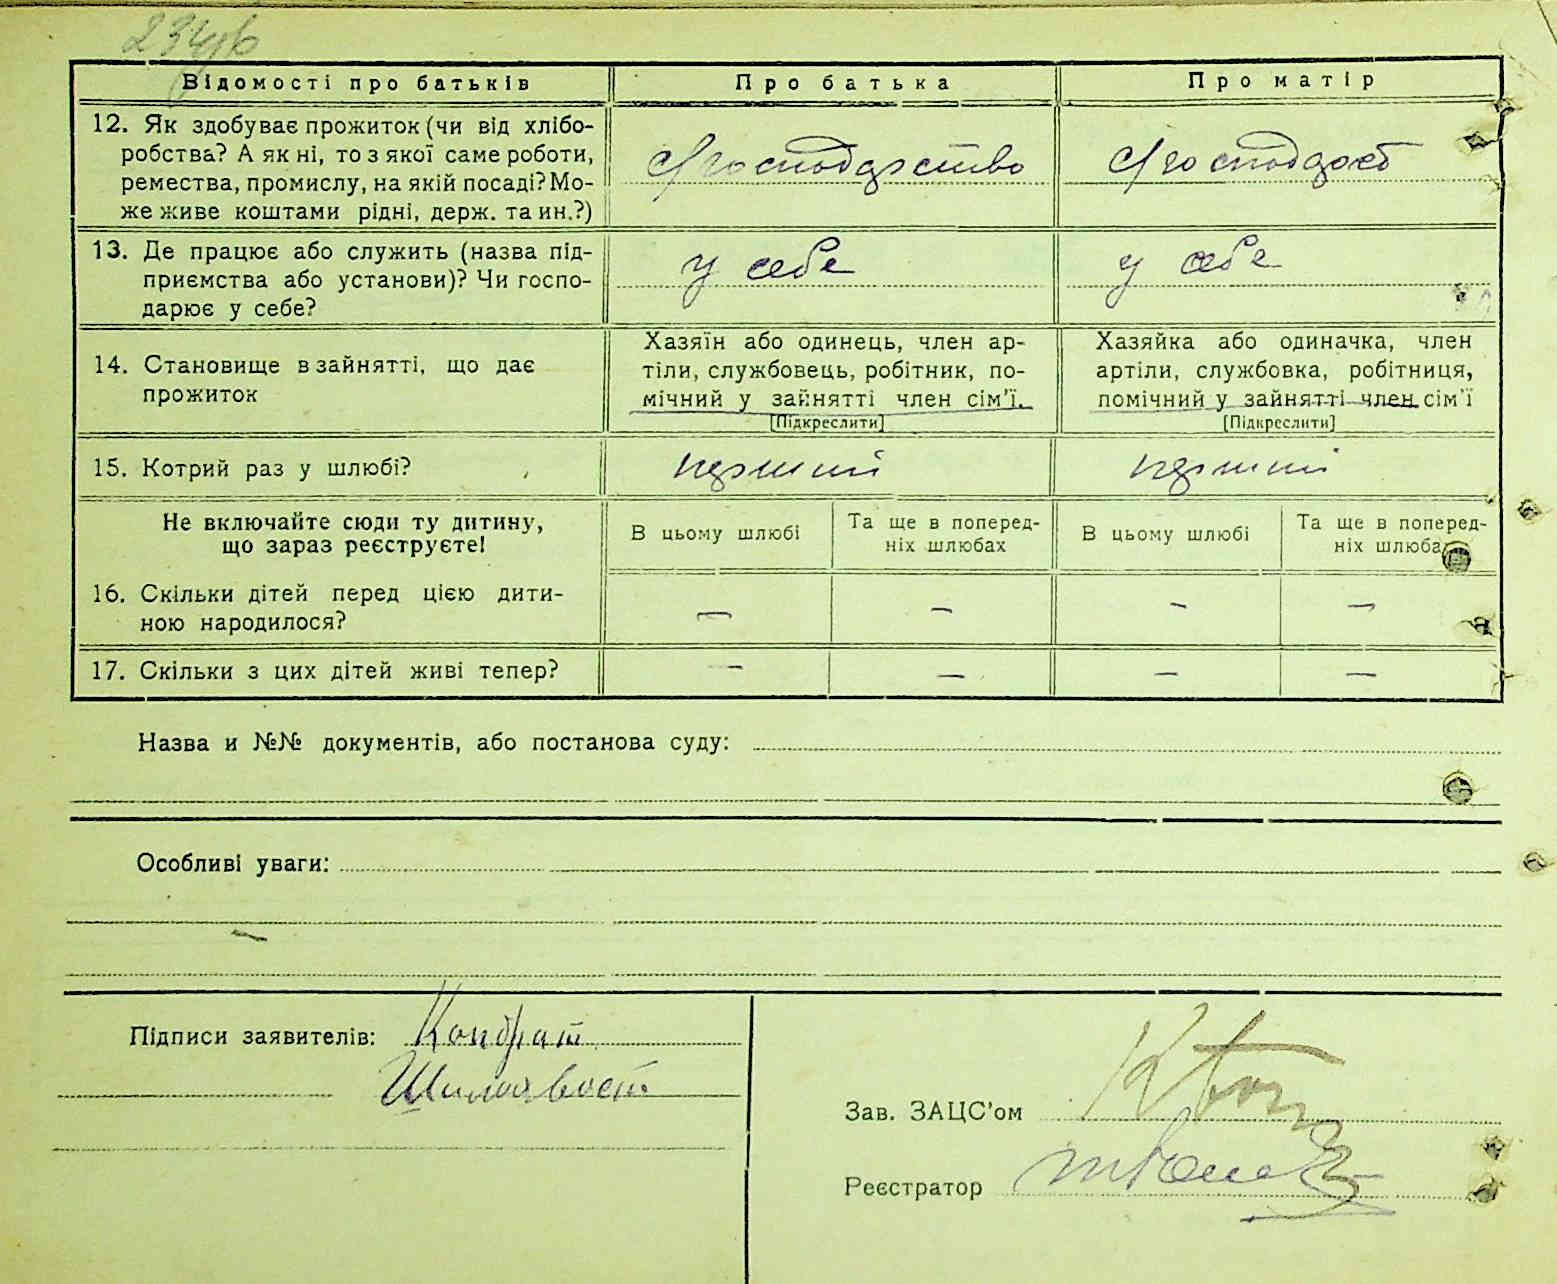 Відомості про батьків Про батька Про матір
12. Як здобуває прожиток (чи від хлібо-
робства? А як ні, то з якої саме роботи,
ремества, промислу, на якій посаді? Мо-
же живе коштами рідні, держ. та ин.?)
С/господарство С/господарст
13. Де працює або служить (назва під-
приємства або установи)? Чи госпо-
дарює у себе?
у себе у себе
14. Становище в зайнятті, що дає
прожиток
Хазяїн або одинець, член ар-
тіли, службовець, робітник, по-
мічний у зайнятті член сім'ї.
[Підкреслити]
Хазяйка або одиначка, член
артіли, службовка, робітниця,
помічний у зайнятті член сім'ї
[Підкреслити]
15. Котрий раз у шлюбі? перший перший
Не включайте сюди ту дитину,
що зараз реєструєте!
В цьому шлюбі
Та ще в поперед-
ніх шлюбах
В цьому шлюбі
Та ще в поперед-
ніх шлюбах
16. Скільки дітей перед цією дити-
ною народилося?
— — — —
17. Скільки з цих дітей живі тепер?
— — — —
Назва и №№ документів, або постанова суду:
Особливі уваги:
—
Підписи заявителів: Кондрат
Зав. ЗАЦС'ом
Реєстратор